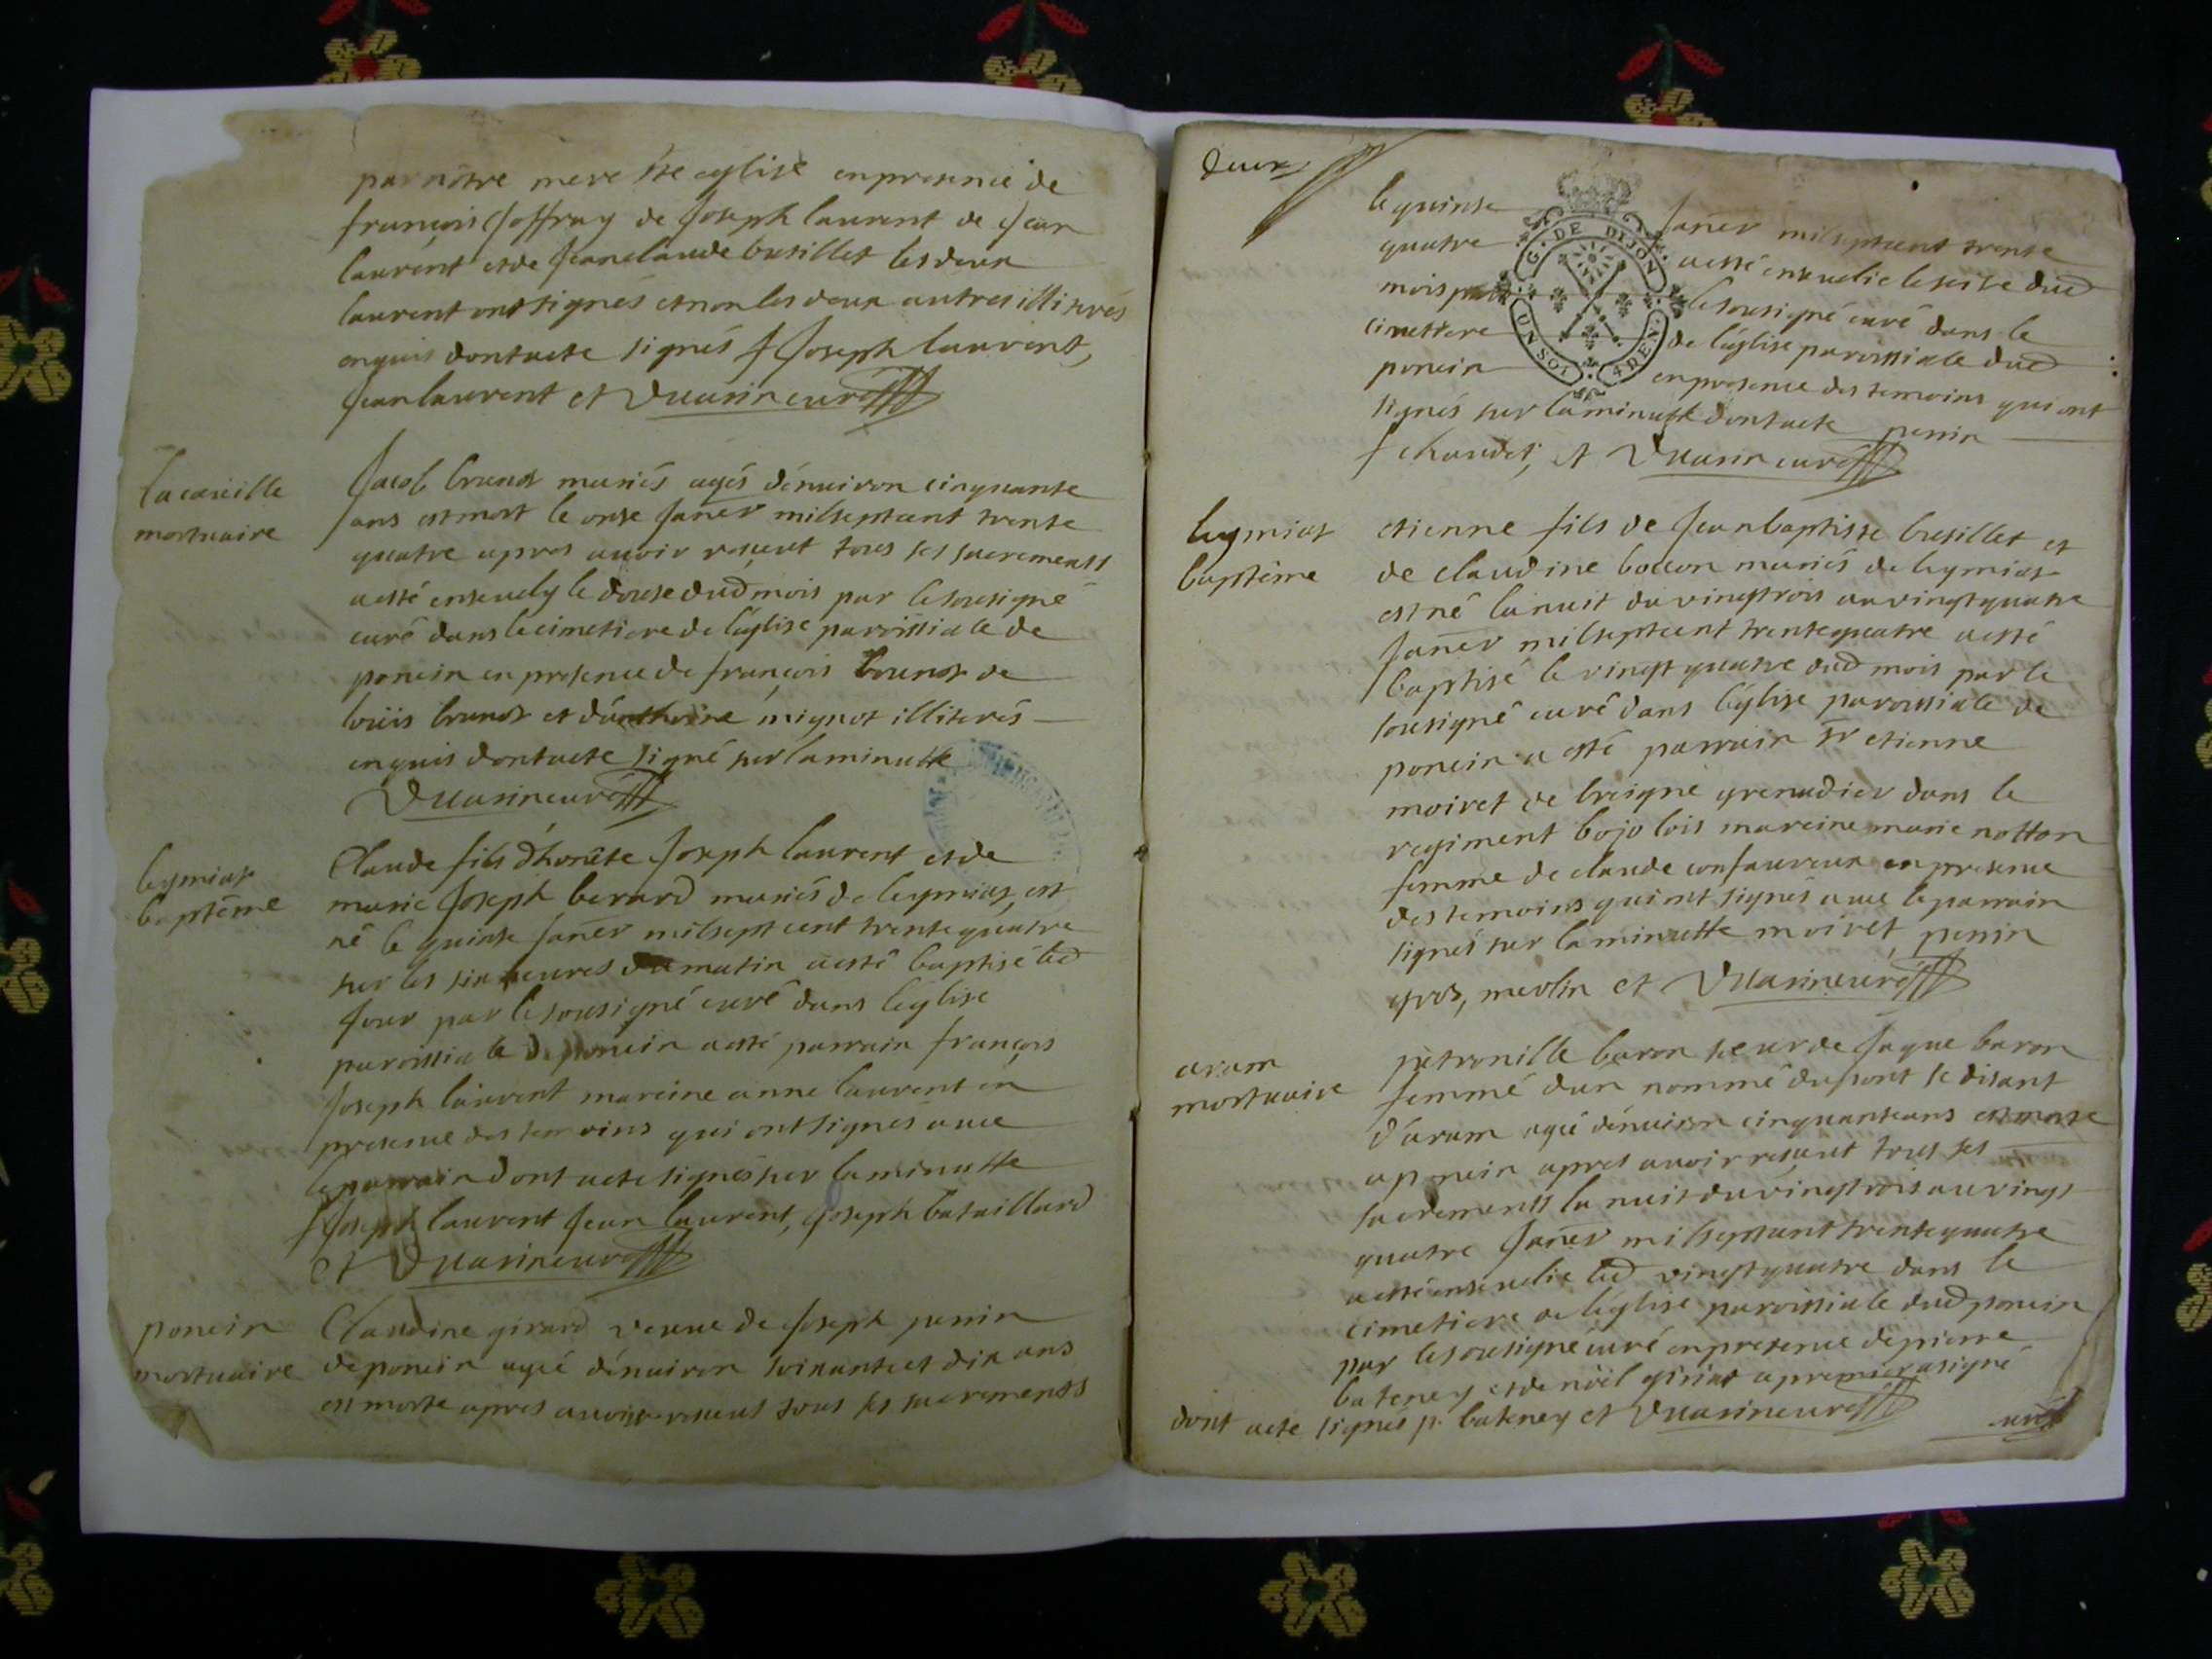 par nôtre mere ste eglise en presence de
françois Joffray de Joseph laurent de Jean
laurent et de Jean claude busillet les deux
laurent ont signés et non les deux autres illiterés
enquis dont acte signés f Joseph laurent,
Jean laurent et Duasin curé
la coüeille
mortuaire
Jacob brunet mariés agés d'enuiron cinquante
ans est mort le onse Janer milseptcent trente
quatre apres auoir reçeut tous ses sacrements
a esté enseuely le douse dud mois par le sousigné
curé dans le cimetiere de l'église paroissiale de
poncin en presence de françois brunet de
loüis brunet et d'anthoine mignot illiterés
enquis dont acte signé sur la minutte
Duasin curé
leymiat
baptême
Claude fils d'honête Joseph laurent et de
marie Joseph berard mariés de leymiat, est
né le quinse Janer milsept cent trente quatre
sur les six heures du matin a esté baptisé led
Jour par le sousigné curé dans l'eglise
paroissiale de poncin a esté parrain françois
Joseph laurent mareine anne laurent en
presence des temoins qui ont signés auec
le parrain dont acte signés sur la minutte
f Joseph laurent Jean laurent, Joseph bataillard
et Duasin curé
poncin
mortuaire
Claudine girard veuue de Joseph penin
de poncin agée d'enuiron soixante et dix ans
est morte apres auoir reseut tous ses sacrements
deux
le quinse Janer milseptcent trente
quatre a esté enseuelie le seise dud
mois par le sousigné curé dans le
cimetiere de l'église paroissiale dud
poncin en presence des temoins qui ont
signés sur la minutte dont acte penin
f chaudet, et Duasin curé
G. DE DIJON
UN SOL 4 DEN.
leymiat
baptême
etienne fils de Jean baptiste bresillet et
de claudine bocon mariés de leymiat
est né la nuit du vingt trois au vingt quatre
Janer milseptcent trente quatre a esté
baptisé le vingt quatre dud mois par le
sousigné curé dans l'église paroissiale de
poncin a esté parrain sr etienne
moiret de breigne grenadier dans le
regiment bojolois mareine marie notton
femme de claude confaureux en presence
des temoins qui ont signés auec le parrain
signés sur la minutte moiret, penin
gros, merlin et Duasin curé
aram
mortuaire
petronille baron seur de Jaque baron
femme d'un nommé dupont se disant
d'aram agée d'enuiron cinquante ans est morte
a poncin apres auoir reseut tous ses
sacrements la nuit du vingt trois au vingt
quatre Janer milseptcent trente quatre
a esté enseuelie led vingt quatre dans le
cimetiere de l'église paroissiale dud poncin
par le sousigné curé en presence de pierre
bateney et de nöel giriat a premier a signé
dont acte signés p. bateney et Duasin curé